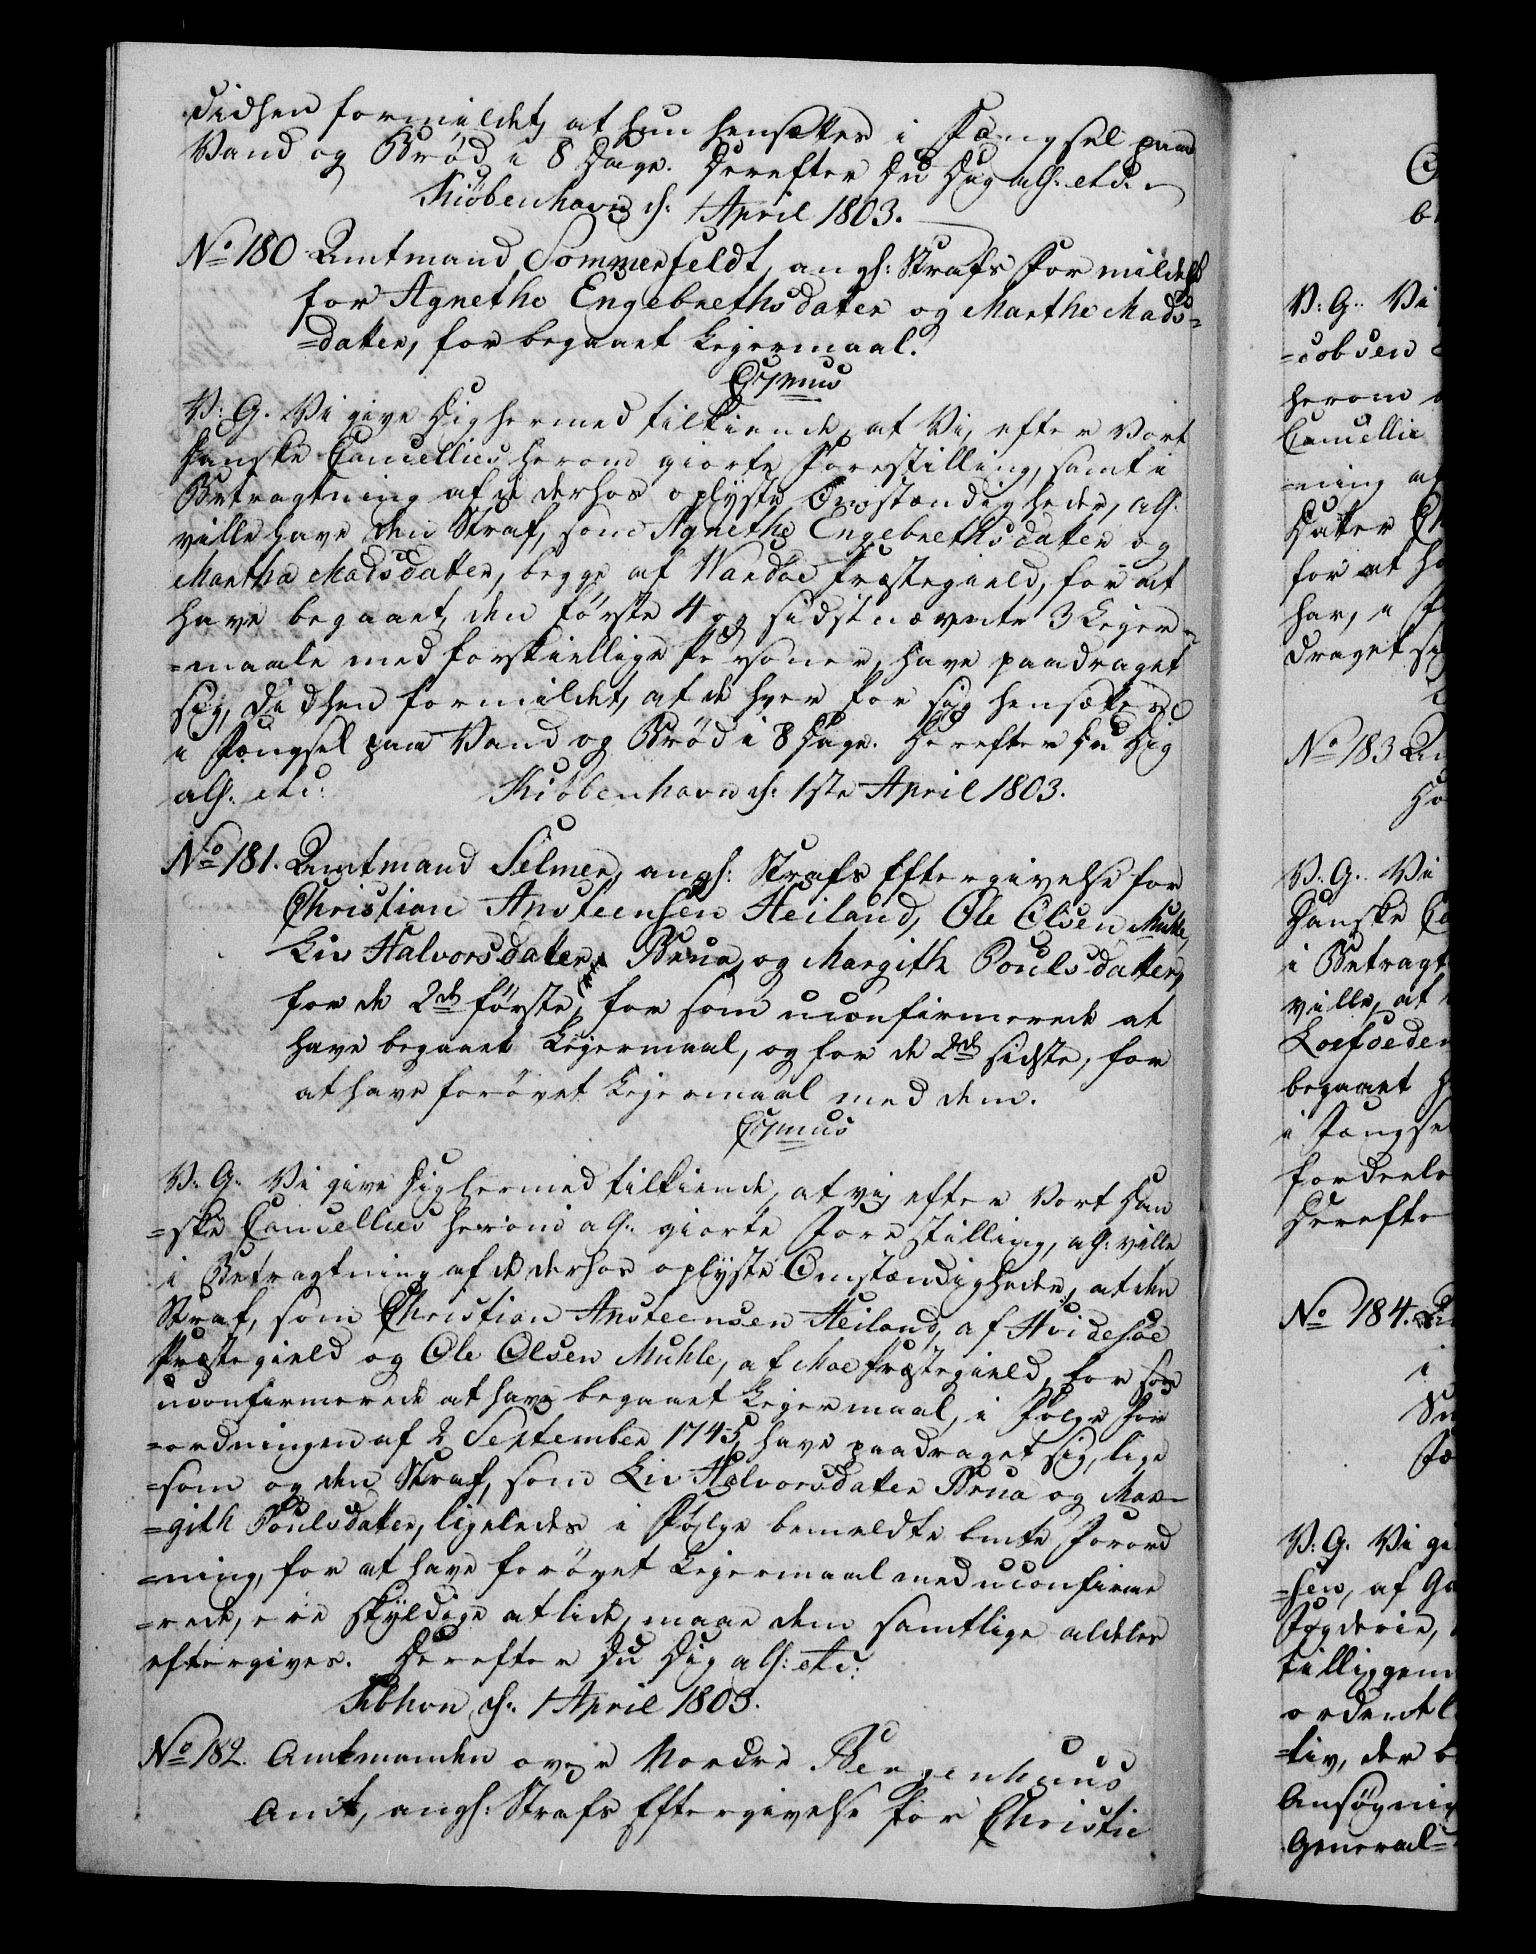 didhen formildet, at hun hensættes i Fængsel paa
Vand og Brød i 8 Dage. Derefter Du Dig all: etc.
Kiöbenhavn d: 1 April 1803.
No 180 Amtmand Sommerfeldt, angl: Strafs Formildelse
for Agnethe Engebrethsdatter og Marthe Mads-
=datter, for begaaet Leiermaal.
V: G. Vi give Dig hermed tilkiende, at Vi, efter Vort
Danske Cancellies herom giorte Forestilling, samt i
Betragtning af de derhos oplyste Omstændigheder, all:
ville have den Straf, som Agnethe Engebrethsdatter og
Martha Madsdatter, begge af Præstegield, for at
have begaaet, den første 4 og sidstnævnte 3 Leier-
=maale med forskiellige Personer, have paadraget
sig, didhen formildet, at de hver for sig hensættes
i Fængsel paa Vand og Brød i 8 Dage. Derefter Du Dig
all: etc: Kiöbenhavn d: 1ste April 1803.
No 181. Amtmand Selmer, angl: Strafs Eftergivelse for
Christian Ansteensen Heiland, Ole Olsen Muhle,
Liv Halvorsdatter Brua, og Margith Poulsdatter,
for de 2de første, for som uconfirmerede at
have begaaet Leiermaal, og for de 2de sidste, for
at have forövet Leiermaal med dem.
V: G. Vi give Dig hermed tilkiende, at vi, efter Vort Dan
=ske Cancellies herom all: giorte Forestilling, all: ville
i Betragtning af de derhos oplyste Omstændigheder, at den
Straf, som Christian Ansteensen Heiland, af Hvidesøe
Præstegield og Ole Olsen Muhle, af Moe Præstegield, for som
uconfirmerede at have begaaet Leiermaal, i Følge For
=ordningen af 2 September 1745, have paadraget sig, lige
=som og den Straf, som Liv Halvorsdatter Brua og Mar-
=gith Poulsdatter, ligeledes i Følge bemeldte Forord
=ning, for at have forövet Leiermaal med uconfirme
=rede, ere skyldige at lide, maae dem samtlige aldeles
eftergives. Derefter Du Dig all: etc:
Kbhvn d: 1 April 1803.
No 182. Amtmanden over Nordre Bergenhuus
Amt, angl: Strafs Eftergivelse for Christie
V: G: Vi
=cobsen
herom
Cancellie
=ning af
Datter
for at
har, i
draget
No 183
V. G. Vi
Danske
i Betragt
ville, at
begaaet
i Fængse
Derefte
No 184.
V: G. Vi gi
=sen, af
Fogderie,
=tiv, der
Ansøgning
General=